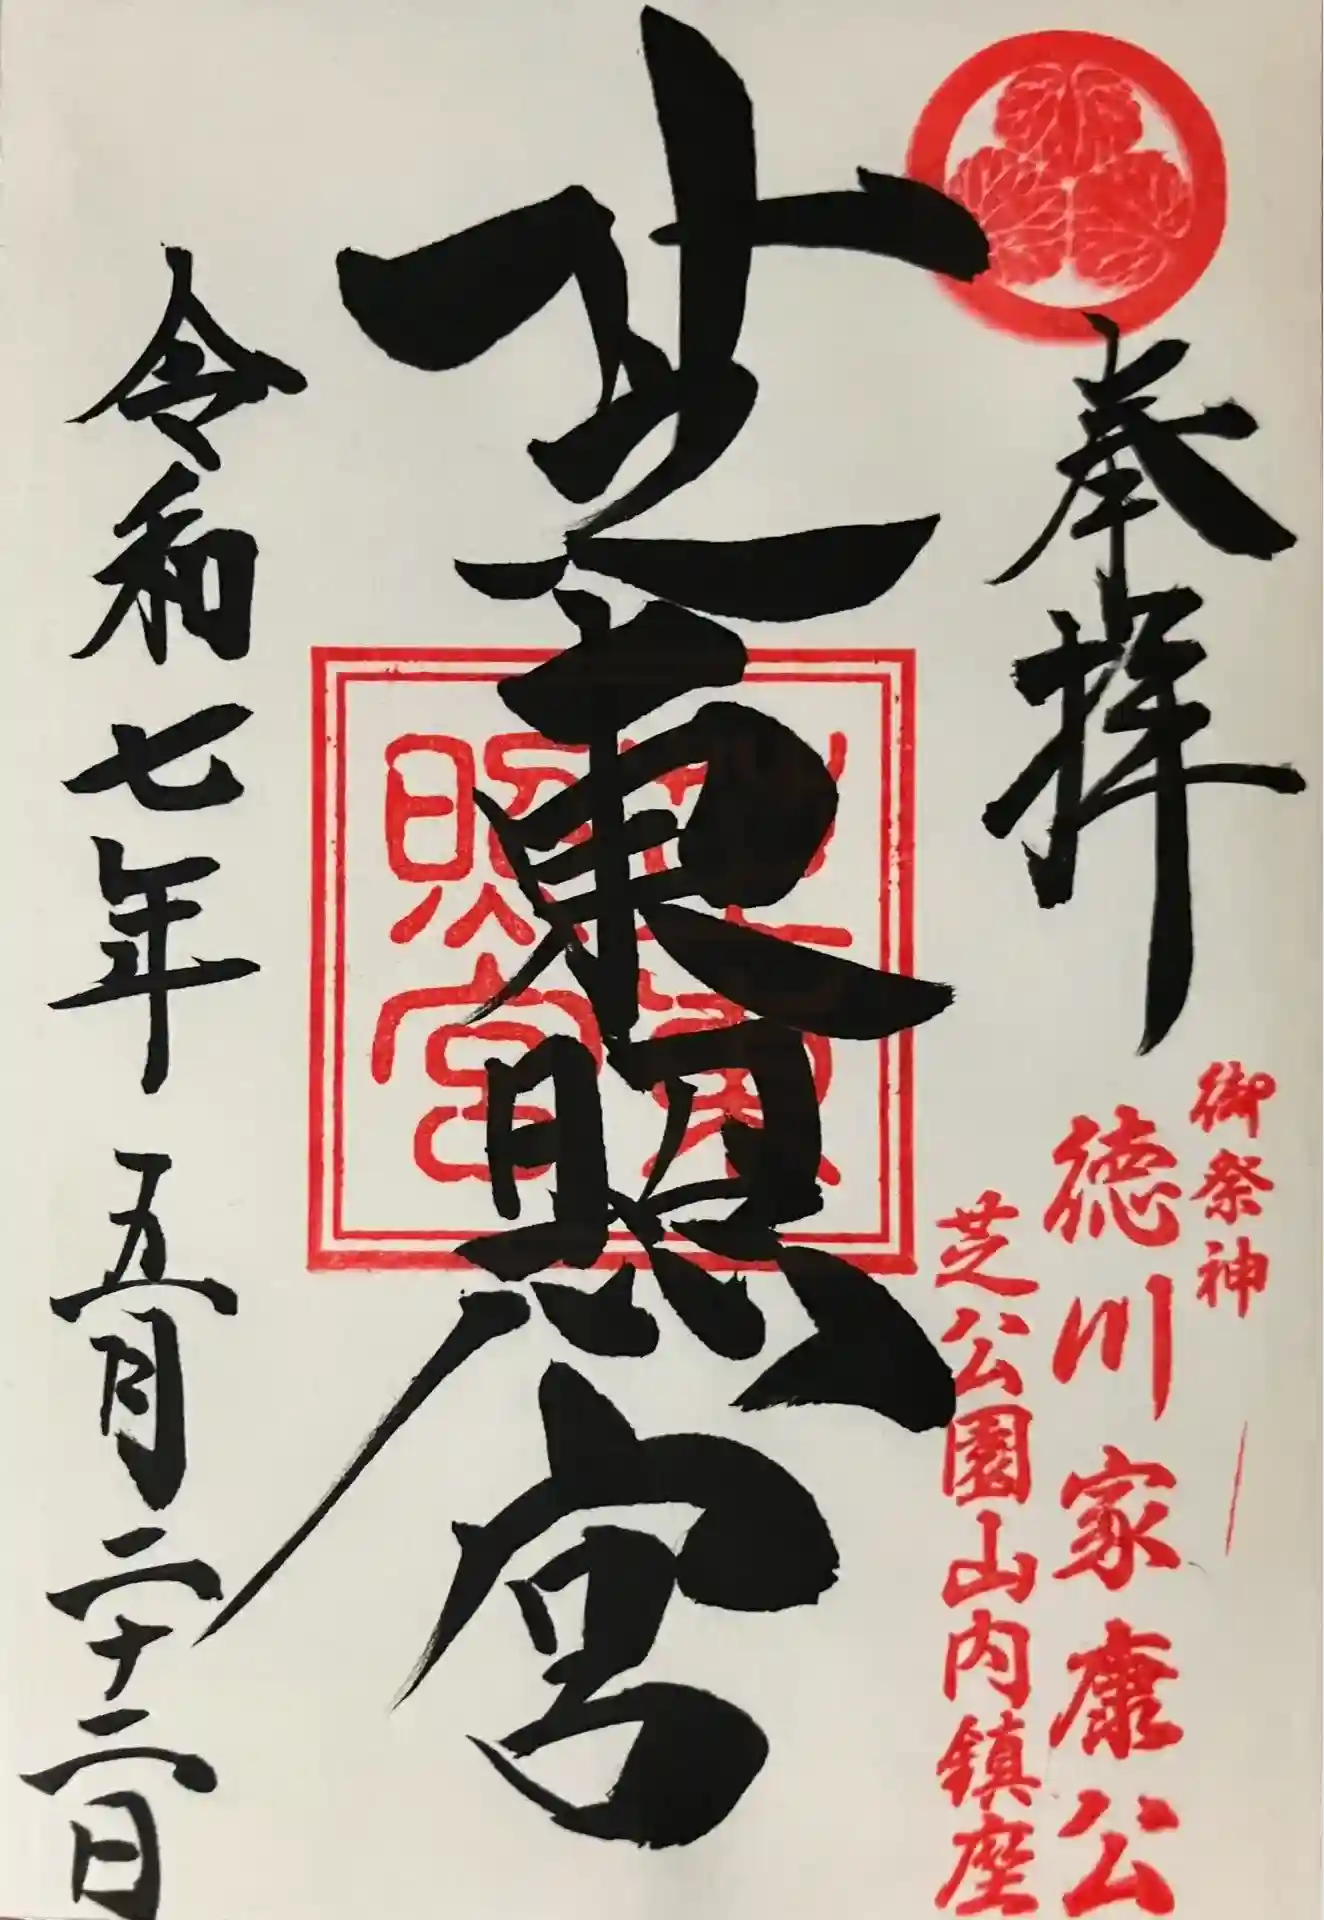 奉拝
御祭神
徳川家康公
芝公園山内鎮座
芝東照宮
芝東
照宮
令和七年五月二十二日